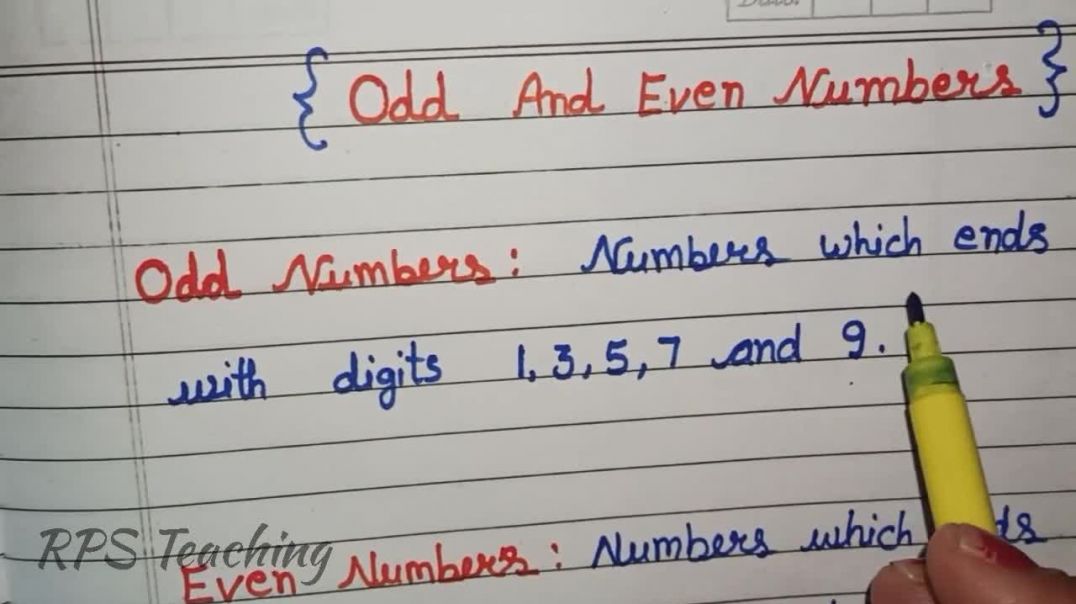 { Odd And Even Numbers }
Odd Numbers: Numbers which ends
with digits 1, 3, 5, 7 and 9.
RPS Teaching
Even Numbers: Numbers which